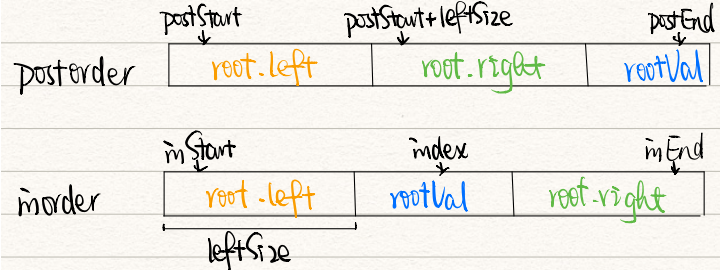 postStart postStart+leftSize postEnd
postorder root.left root.right rootVal
inStart index inEnd
inorder root.left rootVal root.right
leftSize